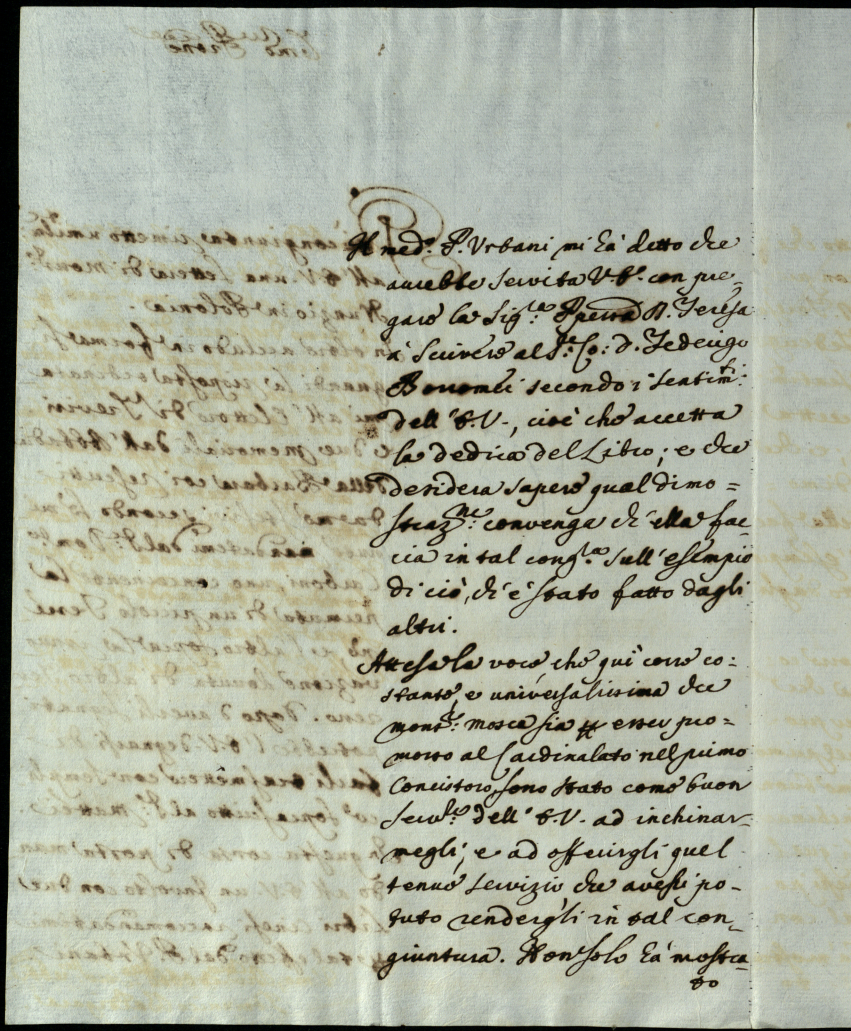 Il med.º P. Urbani mi hà detto che
avrebbe servita V.E. con pre-
gare la Sig.ra D. Teresa
à scivere al S.r Co: D. Federigo
Borromei secondo i sentim.ti
dell'E.V., cioè che accetta
la dedica del Libro; e che
desidera sapere qual dimo=
straz.ne convenga ch'ella fac-
cia in tal cong.ra sull'esempio
di ciò, ch'è stato fatto dagli
altri.
Attesa la voce che quì corre co-
stante, e universalissima che
mons.r Mosca sia per esser pro-
mosso al Cardinalato nel primo
Concistoro, sono stato come buon
Serv.re dell'E.V. ad inchinar-
megli, e ad offerirgli quel
tenue servizio che avessi po-
tuto rendergli in tal con-
giuntura. Non solo hà mostra-
to